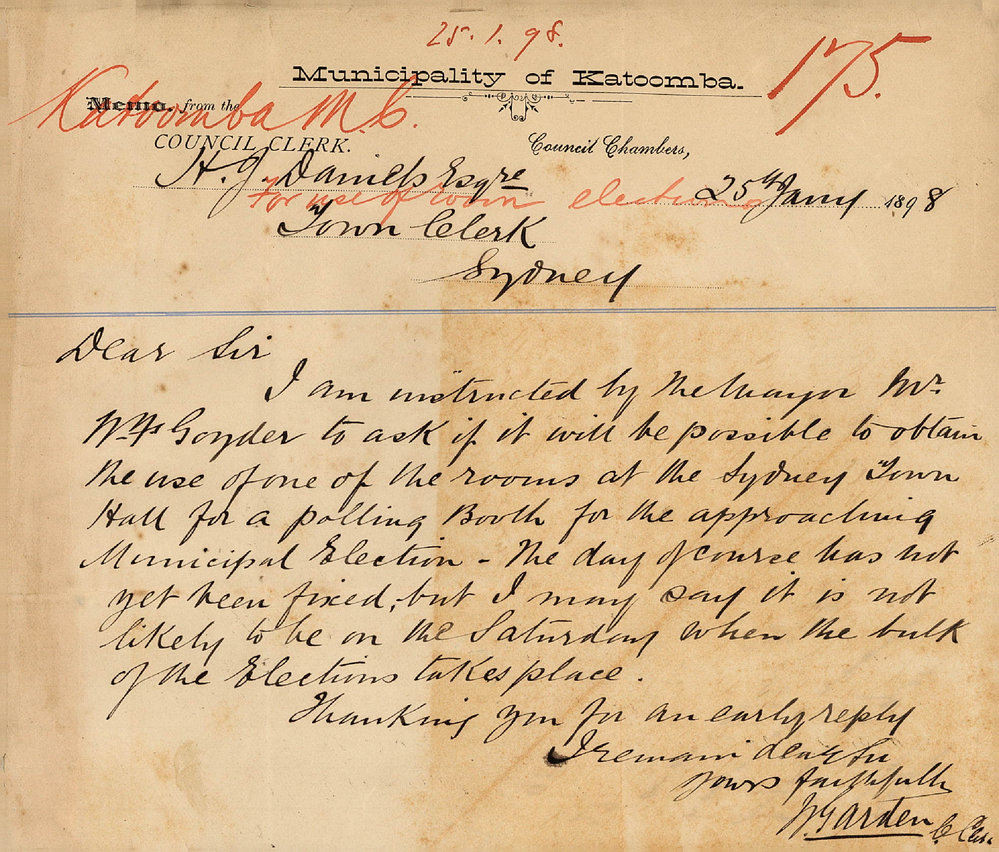 25.1.98.
Municipality of Katoomba.
175.
Katoomba M.C.
Memo. from the
COUNCIL CLERK.
Council Chambers,
H. J. Daniels Esqre
For use of room election
25th Jany 1898
Town Clerk
Sydney
Dear Sir
I am instructed by the Mayor Mr
Goyder to ask if it will be possible to obtain
the use of one of the rooms at the Sydney Town
Hall for a polling Booth for the approaching
Municipal Election - The day of course has not
yet been fixed, but I may say it is not
likely to be on the Saturday when the bulk
of the Elections takes place.
Thanking you for an early reply
I remain dear Sir
yours faithfully
Garden C Clerk